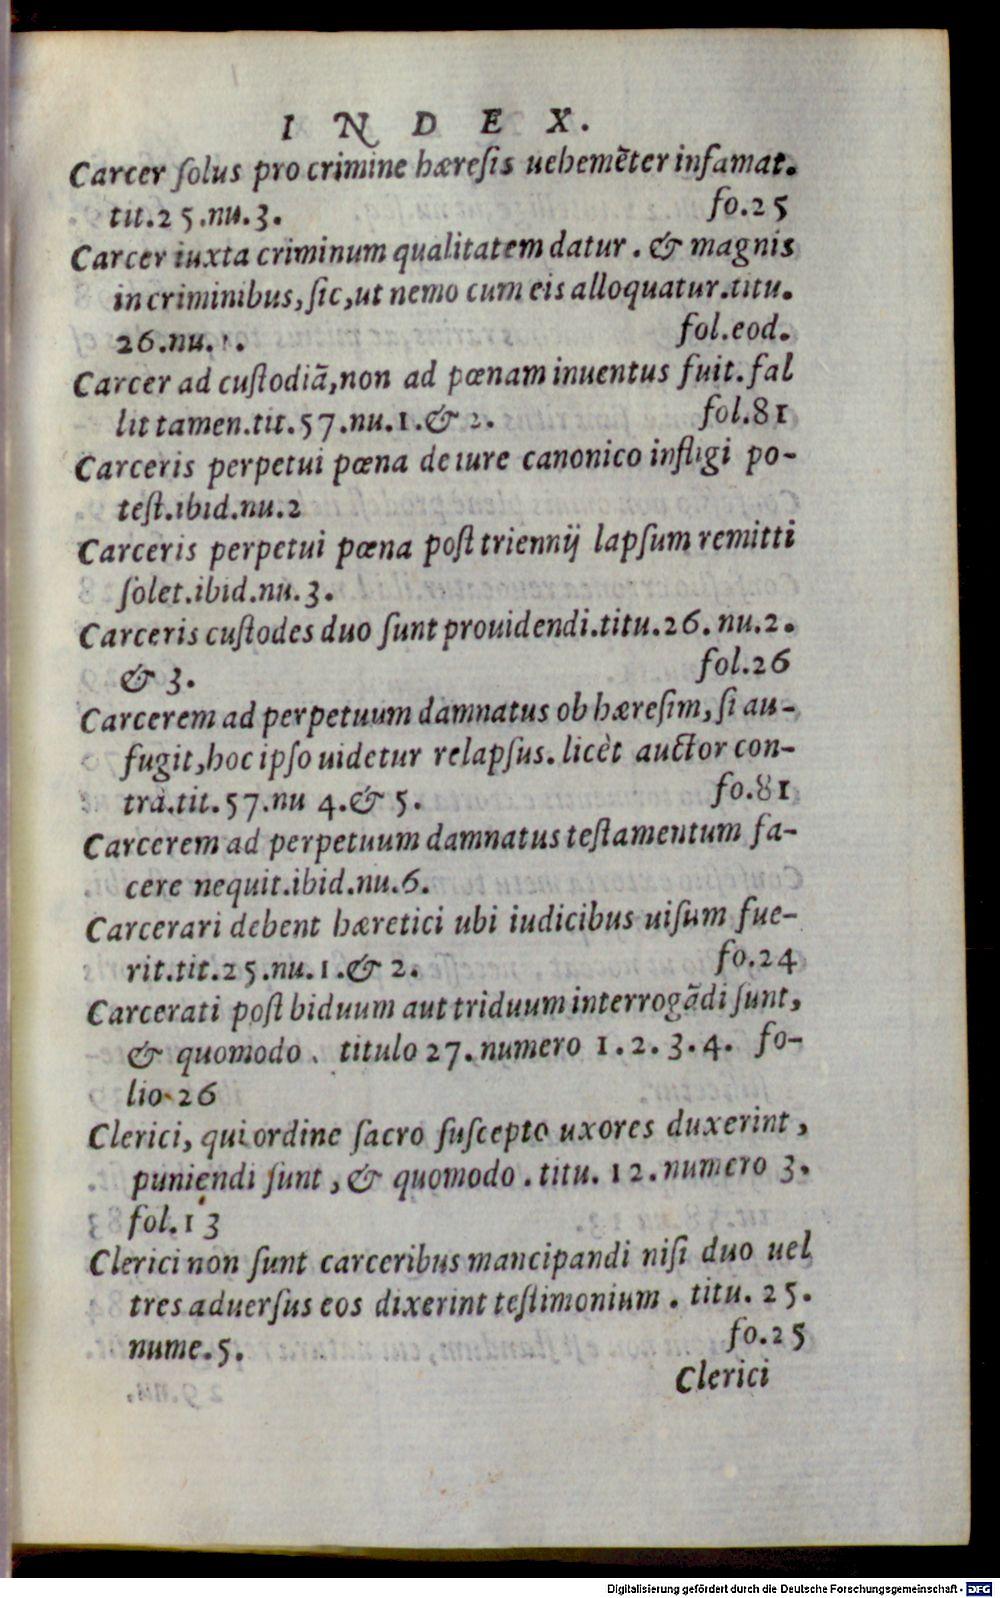 INDEX.
Carcer ſolus pro crimine hæreſis uehemẽter infamat.
tit.25.nu.3. fo.25
Carcer iuxta criminum qualitatem datur. & magnis
in criminibus, ſic, ut nemo cum eis alloquatur.titu.
26.nu.1. fol.eod.
Carcer ad cuſtodiã, non ad pœnam inuentus fuit. fal
lit tamen.tit.57.nu.1.& 2. fol.81
Carceris perpetui pœna de iure canonico infligi po-
teſt.ibid.nu.2
Carceris perpetui pœna poſt triennij lapſum remitti
ſolet.ibid.nu.3.
Carceris cuſtodes duo ſunt prouidendi.titu.26.nu.2.
& 3. fol.26
Carcerem ad perpetuum damnatus ob hæreſim, ſi au-
fugit, hoc ipſo uidetur relapſus. licèt auctor con-
trà.tit.57.nu 4.& 5. fo.81
Carcerem ad perpetuum damnatus teſtamentum fa-
cere nequit.ibid.nu.6.
Carcerari debent hæretici ubi iudicibus uiſum fue-
rit.tit.25.nu.1.& 2. fo.24
Carcerati poſt biduum aut triduum interrogãdi ſunt,
& quomodo. titulo 27.numero 1.2.3.4. fo-
lio.26
Clerici, qui ordine ſacro ſuſcepto uxores duxerint,
puniendi ſunt, & quomodo. titu. 12.numero 3.
fol.13
Clerici non ſunt carceribus mancipandi niſi duo uel
tres aduerſus eos dixerint teſtimonium. titu. 25.
nume.5. fo.25
Clerici
Digitalisierung gefördert durch die Deutsche Forschungsgemeinschaft - DFG